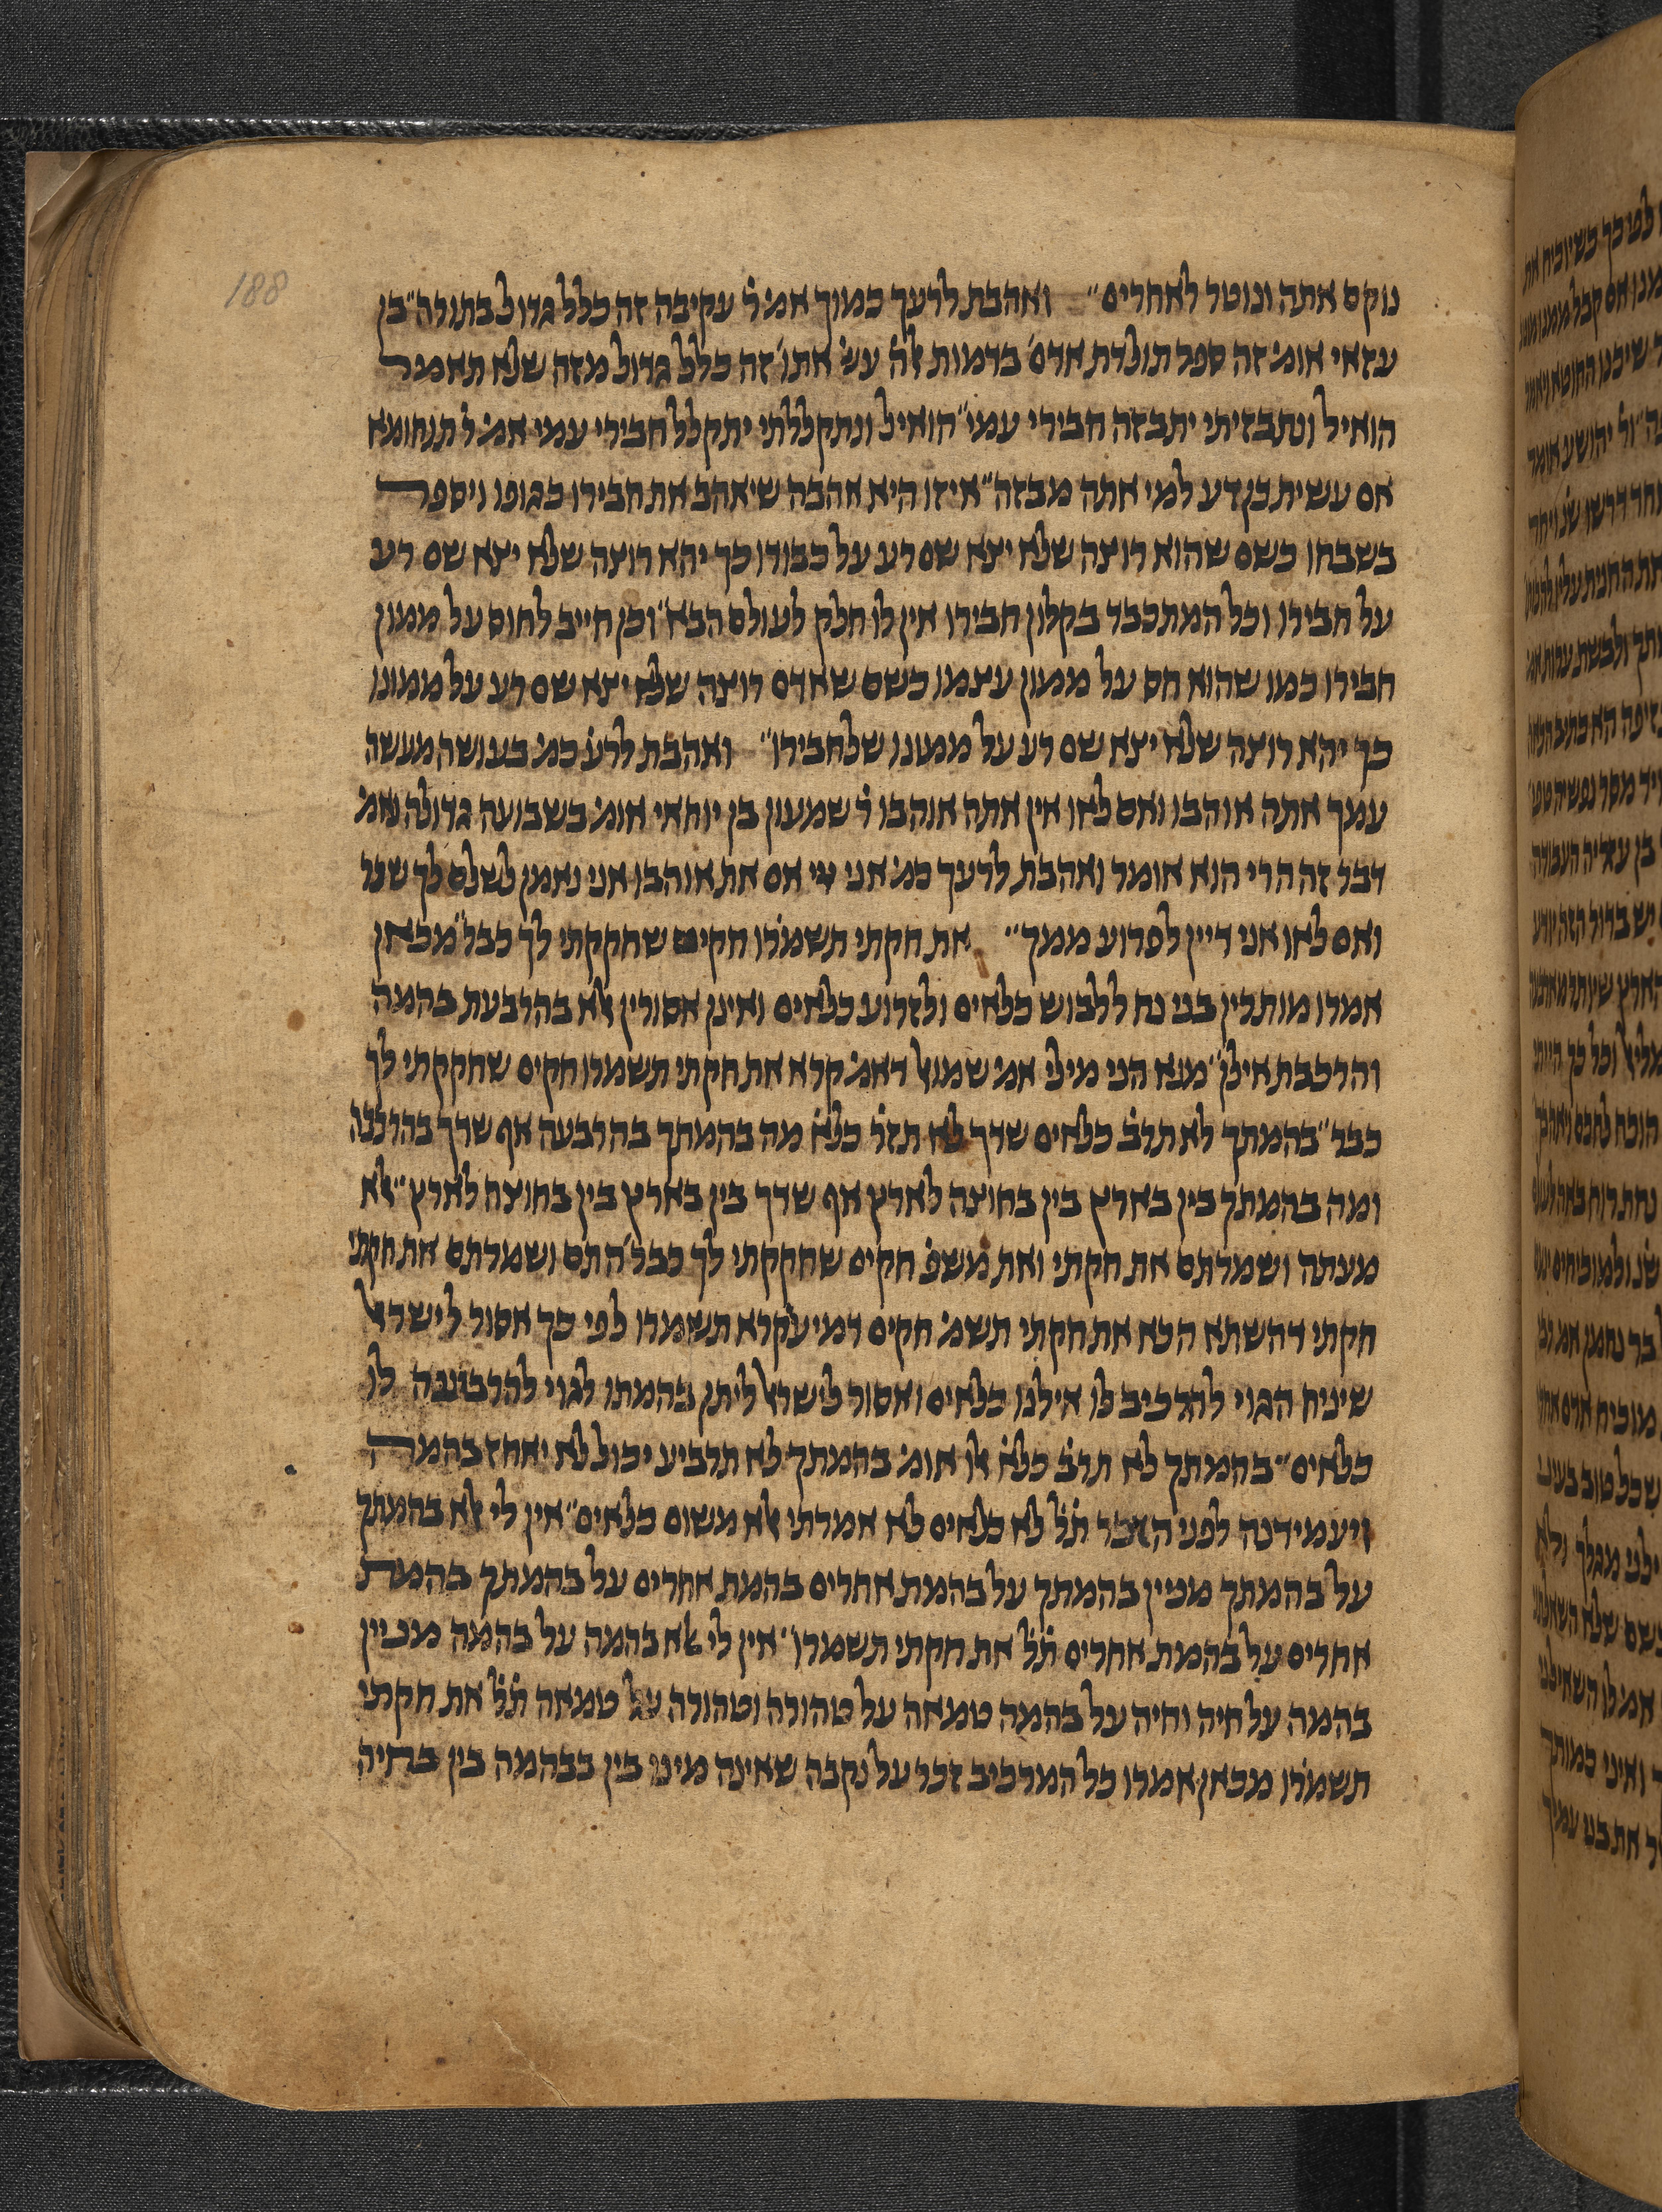 188
נוקם אתה ונוטר לאחרים״ ואהבת לרעך כמוך אמ׳ ר׳ עקיבה זה כלל גדול בתורה״ בן
עזאי אומ׳ זה ספר תולדת אדם׳ בדמות אל׳ עש׳ אתו׳ זה כלל גדול מזה שלא תאמר
הואיל ונתבזיתי יתבזה חבירי עמי״ הואיל ונתקללתי יתקלל חבירי עמי אמ׳ ר׳ תנחומא
אם עשית כן דע למי אתה מבזה״ איזו היא אהבה שיאהב את חבירו כגופו ויספר
בשבחו כשם שהוא רוצה שלא יצא שם רע על כבודו כך יהא רוצה שלא יצא שם רע
על חבירו וכל המתכבד בקלון חבירו אין לו חלק לעולם הבא״ וכן חייב לחוס על ממון
חבירו כמו שהוא חס על ממון עצמו כשם שאדם רוצה שלא יצא שם רע על ממונו
כך יהא רוצה שלא יצא שם רע על ממונו שלחבירו״ ואהבת לרע׳ כמ׳ בעושה מעשה
עמך אתה אוהבו ואם לאו אין אתה אוהבו ר׳ שמעון בן יוחאי אומ׳ בשבועה גדולה נאמ׳
דבר זה הרי הוא אומר ואהבת לרעך כמ׳ אני ייי אם את אוהבו אני נאמן לשלם לך שכר
ואם לאו אני דיין לפרוע ממך״ את חקתי תשמרו חקים שחקקתי לך כבר״ מכאן
אמרו מותרין בני נח ללבוש כלאים ולזרוע כלאים ואינן אסורין אלא בהרבעת בהמה
והרכבת אילן״ מנא הני מילי אמ׳ שמואל דאמ׳ קרא את חקתי תשמרו חקים שחקקתי לך
כבר״ בהמתך לא תרב׳ כלאים שדך לא תזר׳ כלא׳ מה בהמתך בהרבעה אף שדך בהרכבה
ומה בהמתך בין בארץ בין בחוצה לארץ אף שדך בין בארץ בין בחוצה לארץ״ אלא
מעתה ושמרתם את חקתי ואת משפ׳ חקים שחקקתי לך כבר׳ התם ושמרתם את חקתי
חקתי דהשתא הכא את חקתי תשמ׳ חקים דמי עקרא תשמרו לפי כך אסור לישראל
שיניח הגוי להרכיב לו אילנו כלאים ואסור לישראל ליתן בהמתו לגוי להרביעה לו
כלאים״ בהמתך לא תרב׳ כלא׳ אלו אומ׳ בהמתך לא תרביע יכול לא יאחז בהמה
ויעמידנה לפני הזכר ת׳ל׳ לא כלאים לא אמרתי אלא משום כלאים״ אין לי אלא בהמתך
על בהמתך מניין בהמתך על בהמת אחרים בהמת אחרים על בהמתך בהמת
אחרים על בהמת אחרים ת׳ל׳ את חקתי תשמרו״ אין לי אלא בהמה על בהמה מניין
בהמה על חיה וחיה על בהמה טמאה על טהורה וטהורה על טמאה ת׳ל׳ את חקתי
תשמרו מכאן אמרו כל המרכיב זכר על נקבה שאינה מינו בין בבהמה בין בחיה